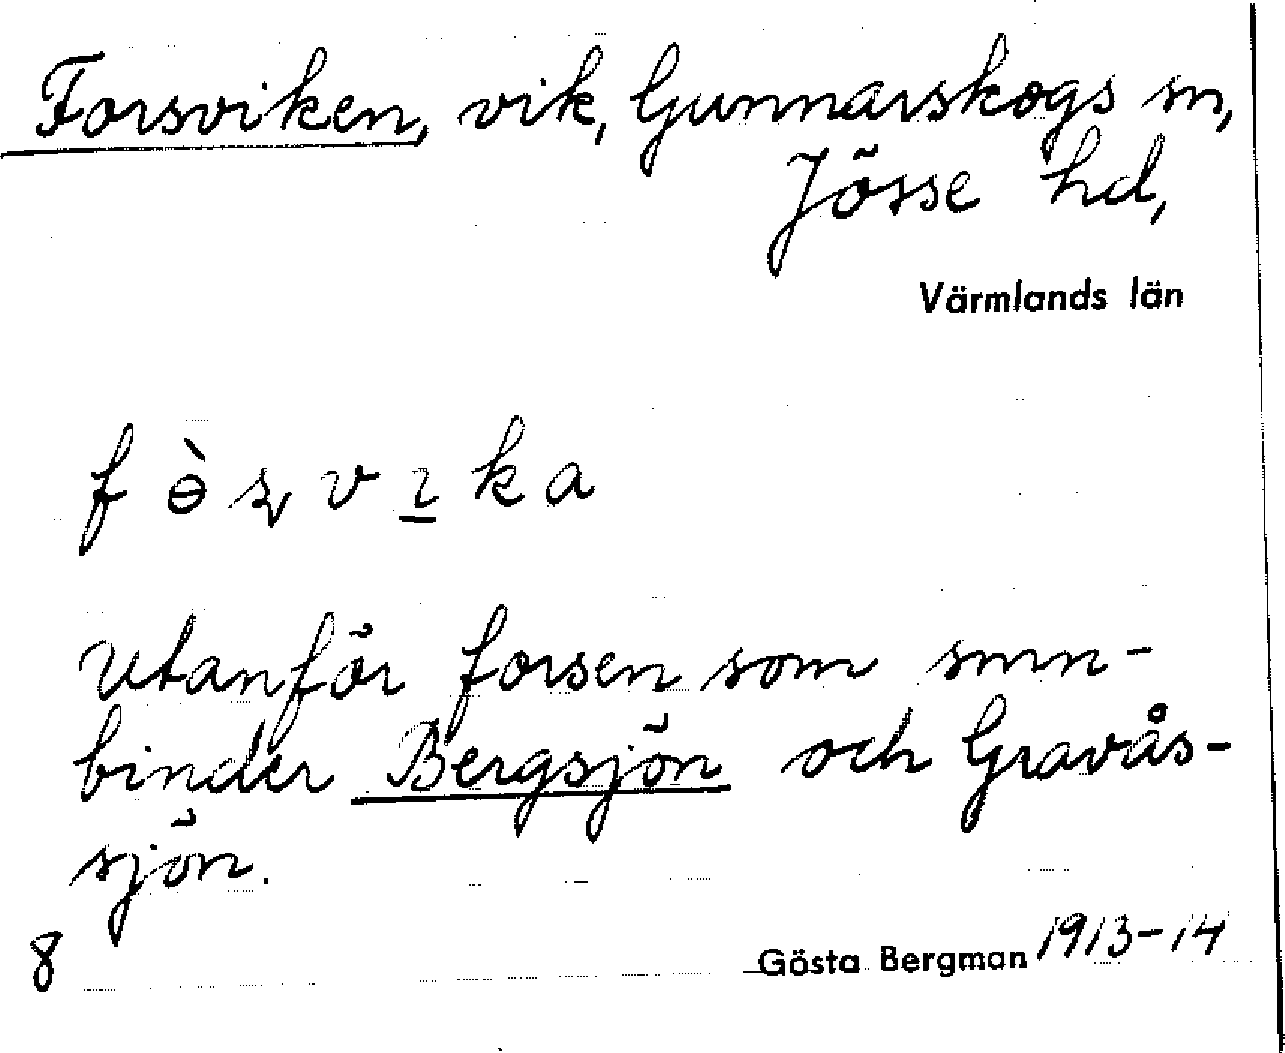 Forsviken, vik, Gunnarskogs sn,
Jösse hd,
Värmlands län
f ɵ̀ ʂ v ɪ k a
Utanför forsen som smn-
binder Bergsjön och Gravås-
sjön.
8
Gösta Bergman 1913-14